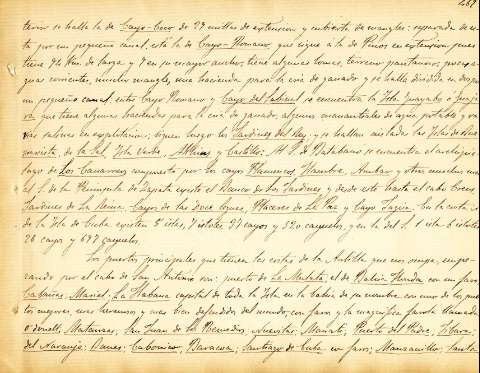 269
terior se halla la de Cayo-Coco de 27 millas de estension y cubierta de mangles: separada de es-
ta por un pequeño canal está la de Cayo-Romano que sigue a la de Pinos en estension pues
tiene 94 Km. de larga y 7 en su mayor ancho, tiene algunas lomas, terreno pantanoso, pocas a-
guas corrientes, mucho mangle, una hacienda para la cria de ganado y se halla dividida en dos por
un pequeño canal. entre Cayo Romano y Cayo del Sabinal se encuentra la Isla Guajaba ó Guaja-
va que tiene algunas haciendas para la cria de ganado, algunos manantiales de agua potable y va-
rias salinas en explotacion; siguen luego los Jardines del Rey y se hallan aisladas las Islas de
de la Sal, Isla Verde, y Castillo; Al S. de Batabano se encuentra el archipie-
lago de Los Canarreos compuesto por los cayos Flamencos, Hambre, Ambar y otros muchos
al S. de la Peninsula de Zapata existe el Banco de los Jardines y desde este hasta el cabo Cruz
Jardines de la Reina, Cayos de las Doce leguas, Placeres de La Paz y Cayo
de la Isla de Cuba existen 5 islas, 7 islotes 77 cayos y 520 cayuelos, y en la del S. 1 isla 6 islotes
26 cayos y 677 cayuelos
Los puertos principales que tienen las costas de la Antilla que nos ocupa, empe-
zando por el cabo de San Antonio son: puerto de La Mulata, el de Bahia Honda, con un faro
Cabañas, Mariel, La Habana capital de toda la Isla en la bahia de su nombre con uno de los puer-
tos mejores, mas hermosos y mas bien defendidos del mundo, con faros y la magnifica farola llamada
O'donell, Matanzas, San Juan de los Remedios, Nuevitas, Manatí, Puerto del Padre, Jibara,
del Naranjo, Banes, Cabonico, Baracoa, Santiago de Cuba con faro, Manzanillo, Santa